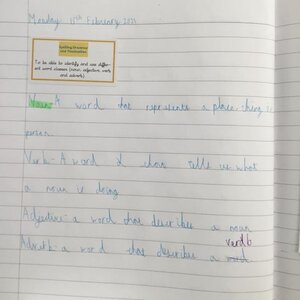 Monday 1st February 2021
Spelling Grammar
and Punctuation
To be able to identify and use differ-
ent word classes (noun, adjective, verb
and adverb).
Noun- A word that represents a place, thing or
person.
Verb- A word that tells us what
a noun is doing
Adjective- a word that describes a noun
verb
Adverb- a word that describes a